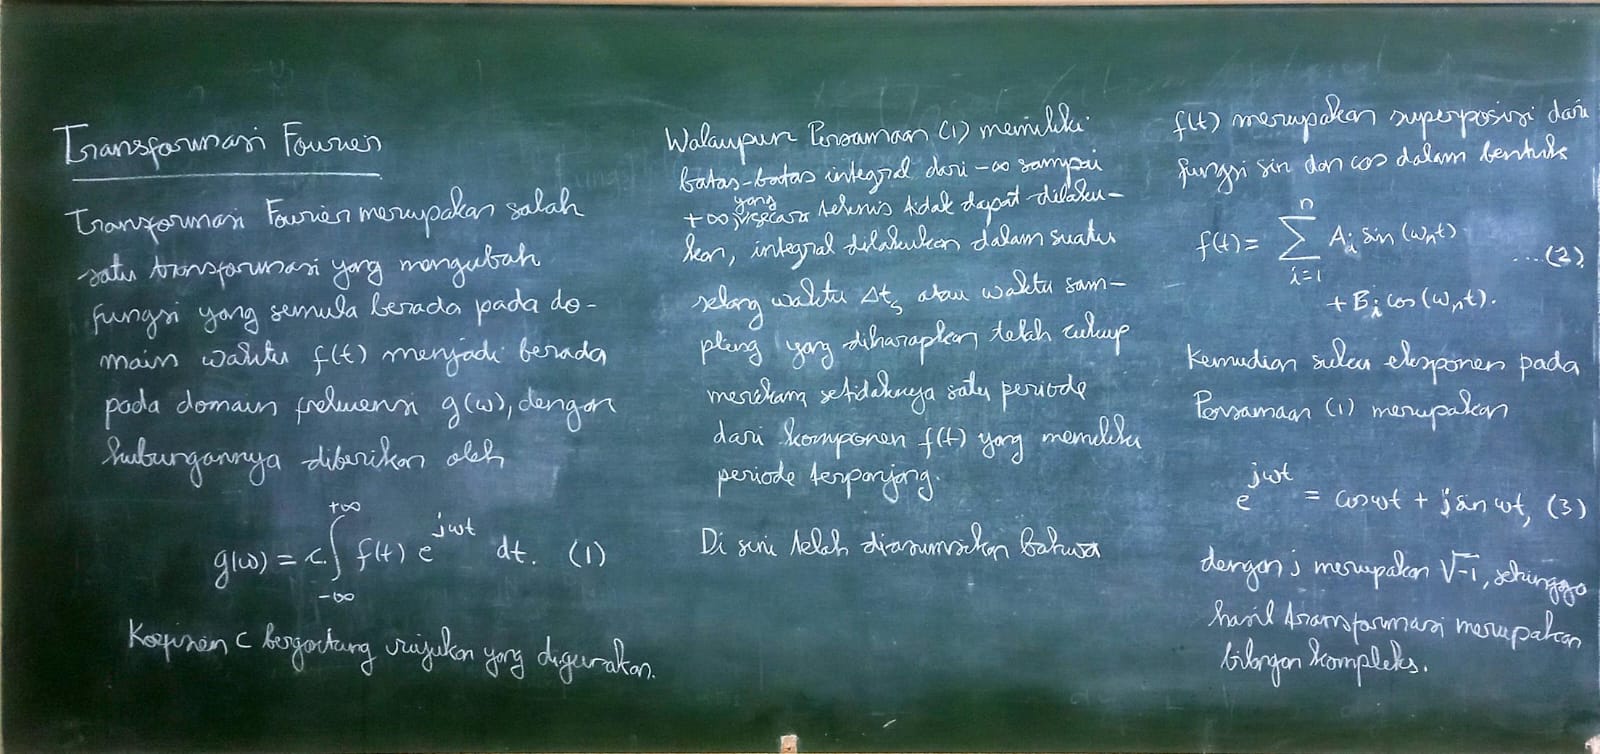 Transformasi Fourier
Transformasi Fourier merupakan salah
satu transformasi yang mengubah
fungsi yang semula berada pada do-
main waktu f(t) menjadi berada
pada domain frekuensi g(ω), dengan
hubungannya diberikan oleh
g(ω) = c.∫_{-∞}^{+∞} f(t) e^{jωt} dt. (1)
Koefisien c bergantung rujukan yang digunakan.
Walaupun Persamaan (1) memiliki
batas-batas integral dari -∞ sampai
+∞, yang secara teknis tidak dapat dilaku-
kan, integral dilakukan dalam suatu
selang waktu Δts atau waktu sam-
pling yang diharapkan telah cukup
merekam setidaknya satu periode
dari komponen f(t) yang memiliki
periode terpanjang.
Di sini telah diasumsikan bahwa
f(t) merupakan superposisi dari
fungsi sin dan cos dalam bentuk
f(t) = ∑_{i=1}^{n} A_i sin (ω_n t) ...(2)
+ B_i cos (ω_n t).
Kemudian suku eksponen pada
Persamaan (1) merupakan
e^{jωt} = cos ωt + j sin ωt, (3)
dengan j merupakan √-1, sehingga
hasil transformasi merupakan
bilangan kompleks.